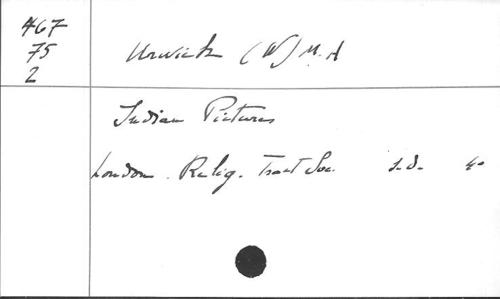 467
75
2
Urwick (W) M. A
Indian Pictures
London. Relig. Tract Soc. s.d. 4°